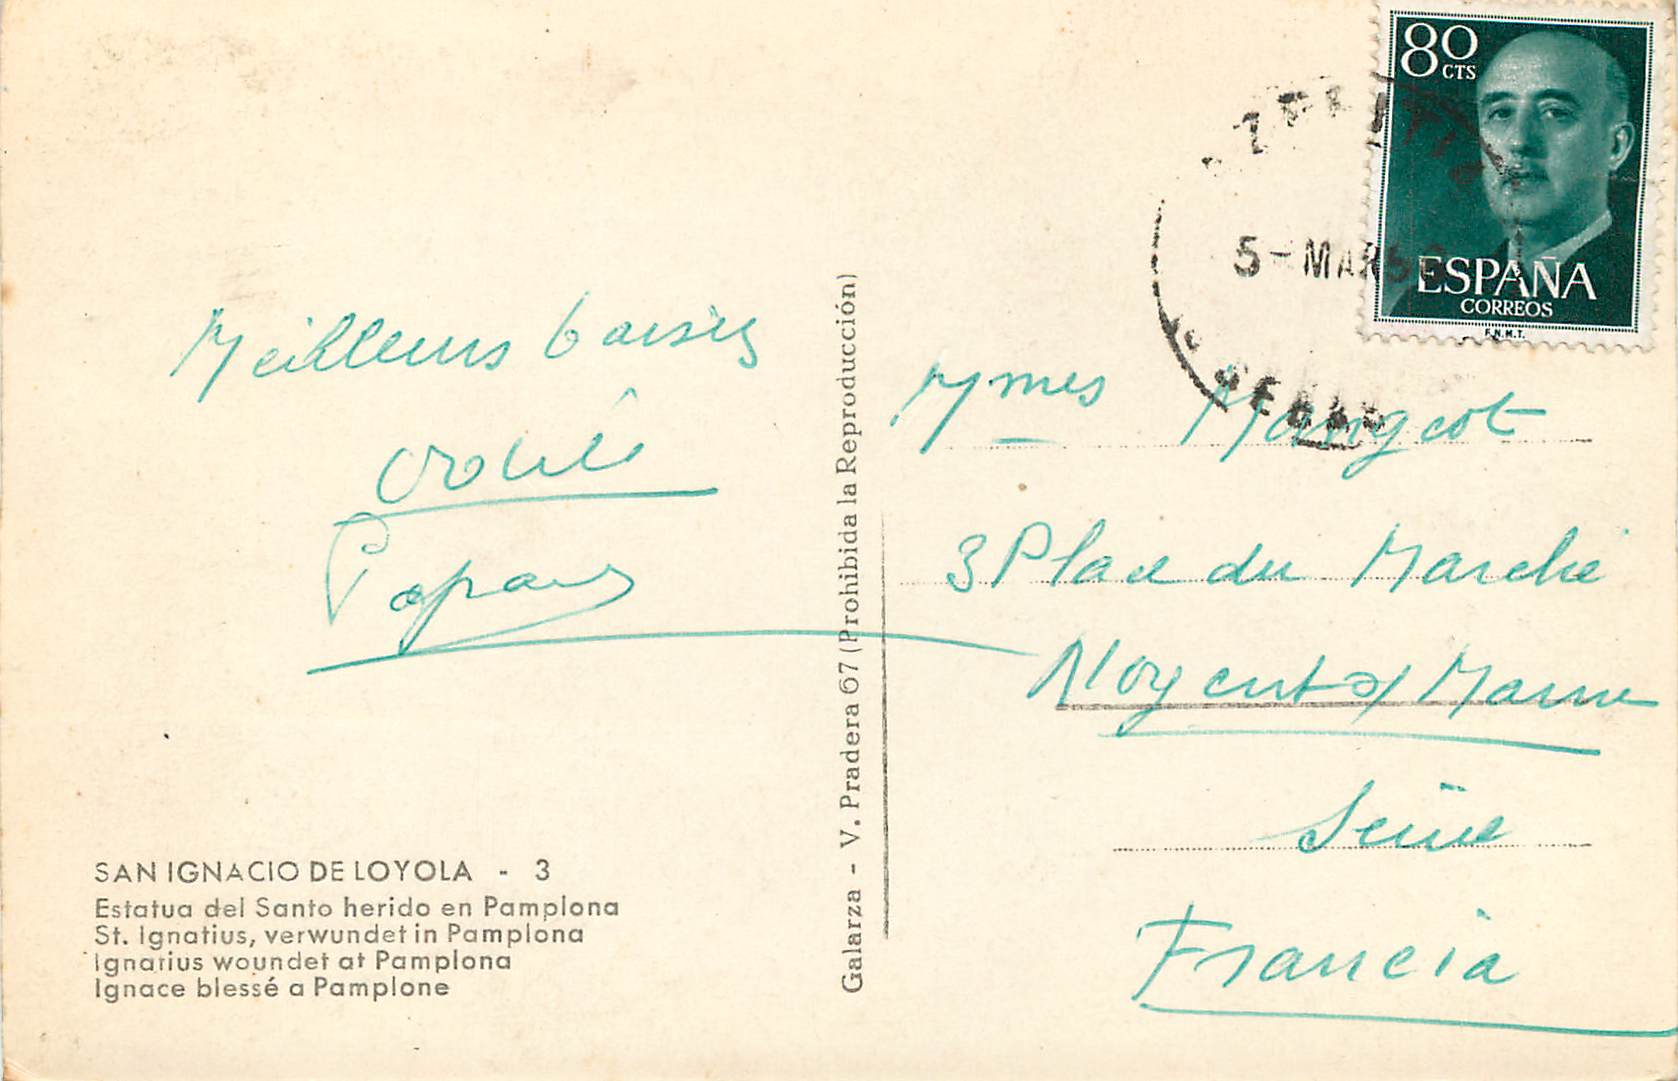 80
CTS
ESPAÑA
CORREOS
F.N.M.T.
5 - MAR 56
Meilleurs baisers
Papa
Mmes Mangeot
3 Place du Marché
Nogent s/ Marne
Seine
Francia
SAN IGNACIO DE LOYOLA - 3
Estatua del Santo herido en Pamplona
St. Ignatius, verwundet in Pamplona
Ignatius woundet at Pamplona
Ignace blessé a Pamplone
Galarza - V. Pradera 67 (Prohibida la Reproducción)